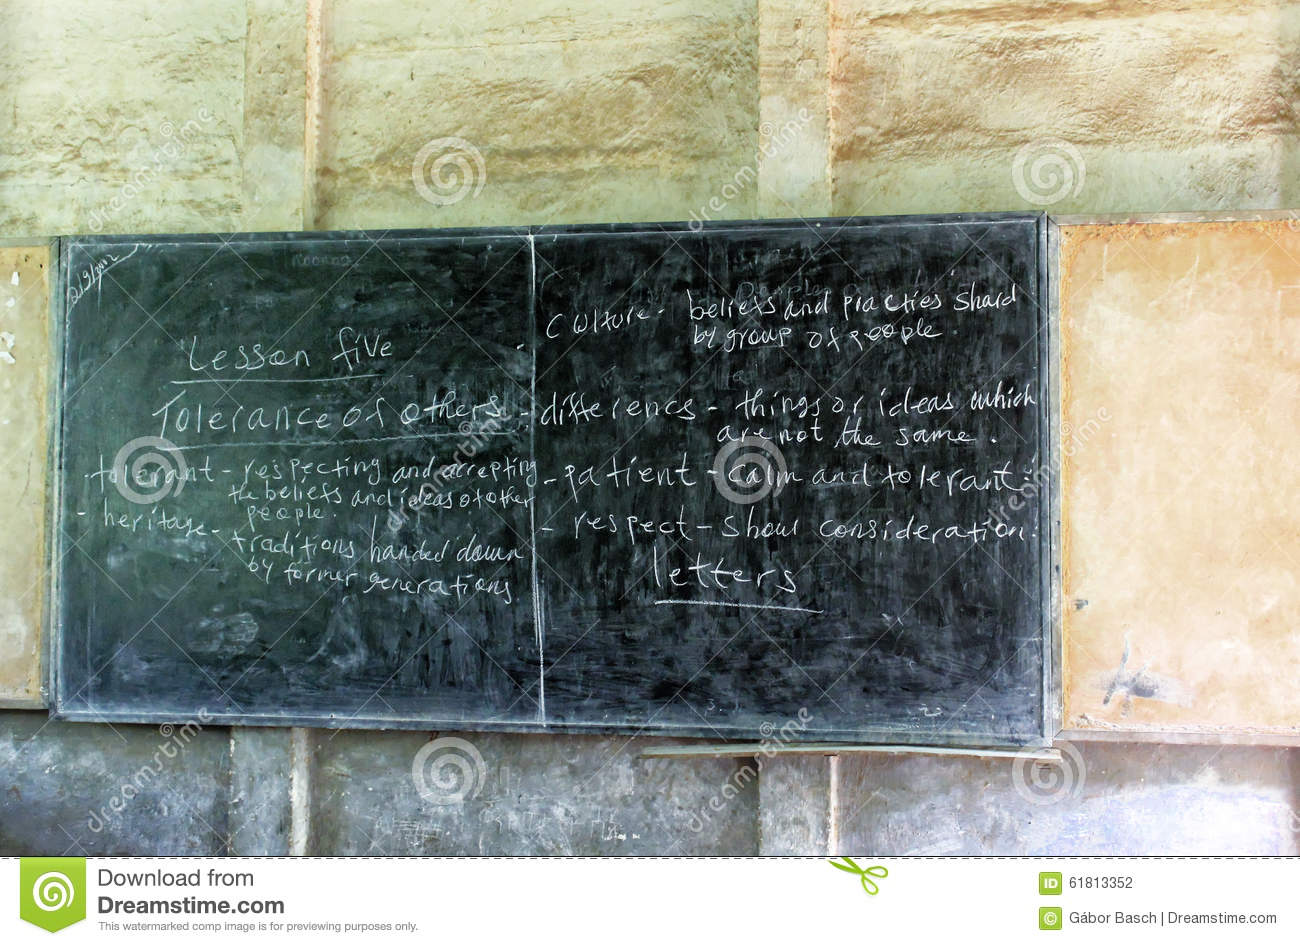 Lesson five
Tolerance of others
- tolerant - respecting and accepting
the beliefs and ideas of other
people.
- heritage - traditions handed down
by former generations
- Culture - beliefs and practies shard
by group of people
- differencs - things or ideas which
are not the same.
- patient - calm and tolerant.
- respect - show consideration.
letters
Download from
Dreamstime.com
This watermarked comp image is for previewing purposes only.
ID 61813352
© Gábor Basch | Dreamstime.com